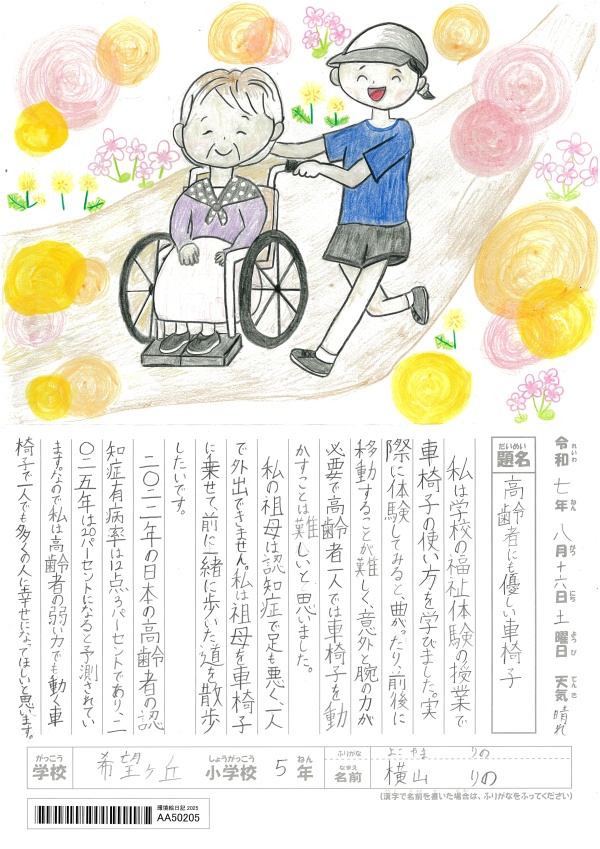 令和七年八月十六日土曜日 天気 晴れ
れいわ ねん がつ にち ようび てんき
だいめい
題名 高齢者にも優しい車椅子
私は学校の福祉体験の授業で
車椅子の使い方を学びました。実
際に体験してみると、曲がったり、前後に
移動することが難しく、意外と腕の力が
必要で高齢者一人では車椅子を動
かすことは難しいと思いました。
私の祖母は認知症で足も悪く、一人
で外出できません。私は祖母を車椅子
に乗せて、前に一緒に歩いた道を散歩
したいです。
二〇二二年の日本の高齢者の認
知症有病率は12点3パーセントであり、二
〇二五年は20パーセントになると予測されてい
ます。なので私は高齢者の弱い力でも動く車
椅子で一人でも多くの人に幸せになってほしいと思います。
がっこう しょうがっこう ねん
学校 希望ヶ丘 小学校 5年
ふりがな よこやま りの
なまえ
名前 横山 りの
(漢字で名前を書いた場合は、ふりがなをふってください)
環境絵日記 2025
AA50205